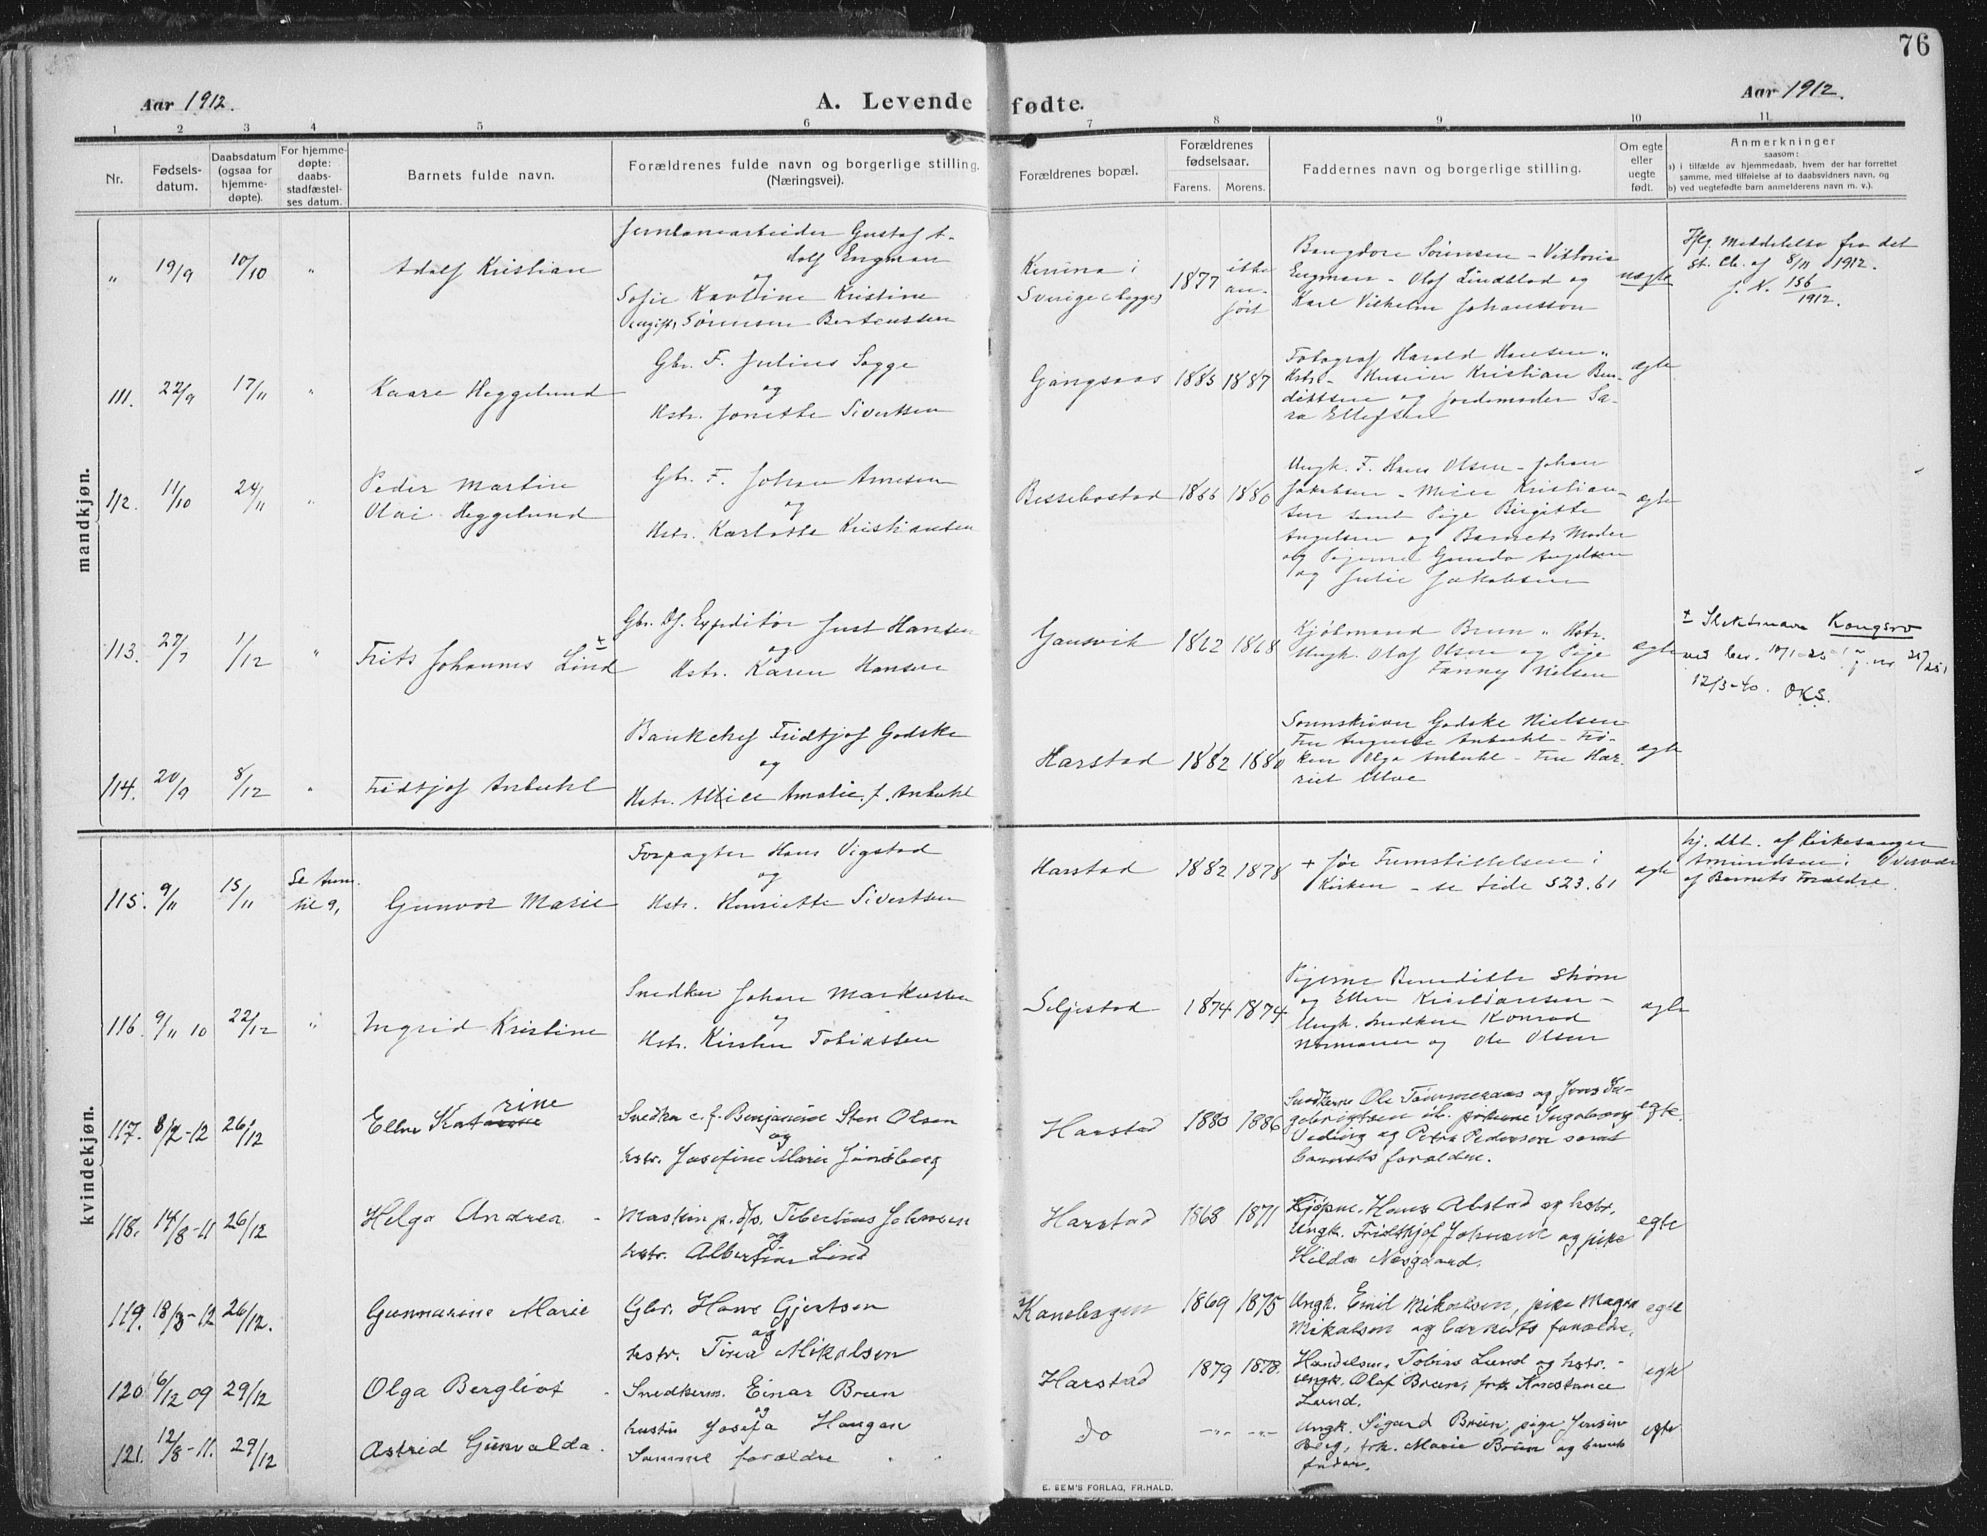 76
Aar 1912.
A. Levende fødte.
Aar 1912.
1 2 3 4 5 6 7 8 9 10 11
Nr.
Fødsels-
datum.
Daabsdatum
(ogsaa for
hjemme-
døpte).
For hjemme-
døpte:
daabs-
stadfæstel-
ses datum.
Barnets fulde navn.
Forældrenes fulde navn og borgerlige stilling.
(Næringsvei).
Forældrenes bopæl.
Forældrenes
fødselsaar.
Farens. Morens.
Faddernes navn og borgerlige stilling.
Om egte
eller
uegte
født.
Anmerkninger
saasom:
a) i tilfælde av hjemmedaab, hvem der har forrettet
samme, med tilføielse af to daabsvidners navn, og
b) ved uegtefødte barn anmelderens navn m. v.).
mandkjøn.
" 19/9 10/10 "
Adolf Kristian
Jernbanearbeider Gustaf A-
dolf Engman
og
Sofie Karoline Kristine
(ugift) Sørensen Berteussen
Kiruna i
Sverige (begge)
1877
ikke
an-
ført
Sørensen - Viktoria
Engman - Olaf Lindblad og
Karl Vilhelm Johansson
uægte
Iflg Meddelelse fra det
st. Cb. af 8/11 1912.
J. N. 156/1912.
111. 22/9 17/11 "
Kaare Heggelund
Gbr. F. Julius Sagge
og
Hstr. Jonette Sivertsen
Gangsaas
1885 1887
Fotograf Harald Hansen "
Hstr. - Kristian Ben-
dittsen og Jordemoder Sa-
ra Ellefsen
ægte
112. 11/10 24/11 "
Peder Martin
Olai Heggelund
Gbr. F. Johan Arnesen
og
Hstr. Karlotte Kristiansen
Bessebostad
1866 1880
Ungk. F. Hans Olsen - Johan
Jakobsen - Meier Kristian-
sen samt Pige Birgitte
Angelsen og Barnets Moder
og Pigerne Gunda Angelsen
og Julie Jakobsen
ægte
113. 27/7 1/12 "
Frits Johannes Lind ±
Gbr. Df. Expeditør Just Hansen
og
Hstr. Karen Hansen
Gansvik
1862 1868
Kjøbmand Brun " Hstr.
Ungk. Olaf Olsen og Pige
Fanny Nielsen
ægte
± Slektsnavn Kongsvo
ved bev. 10/1-25
12/3-40. O.K.S.
114. 20/9 8/12 "
Fridtjof Anbuhl
Bankchef Fridtjof Godske
og
Hstr. Alice Amalie f. Anbuhl
Harstad
1882 1880
Godske Nielsen
Fru Auguste Anbuhl - Frø-
ken Olga Anbuhl - Fru Har-
riet Ulve
ægte
kvindekjøn.
115. 9/11 15/11
Se Anm.
til 9,
Gunvor Marie
Forpagter Hans Vigstad
og
Hstr. Henriette Sivertsen
Harstad
1882 1878
+ før Fremstillelsen i
Kirken - se side 523. 61
ægte
hj. dbt. af Kirkesanger
Amundsen i
af Barnets Forældre.
116. 9/11 10 22/12 "
Ingrid Kristine
Snedker Johan Markussen
og
Hstr. Kirsten Tobiassen
Seljestad
1874 1874
Pigerne Benedikte Strøm
og Ellen Kristiansen -
Ungk. Snedkere Konrad
Normann og Ole Olsen
ægte
117. 8/2-12 26/12
Ellen Katarine
Snedker e. f. Benjamin Sten Olsen
og
hstr. Josefine Marie Jonsberg
Harstad
1880 1886
Snedkerne Ole Tømmeraas og Jens In-
gebrigtsen pikerne Ingeborg
Veding og Petra Pedersen samt
barnets forælden.
egte.
118. 14/8-11 26/12
Helga Andrea -
Maskin p. d/s. Tibertius Johnsen
og
hstr. Albertine Lind
Harstad
1868 1871
Kjøpm. Hans Alstad og hstr.
Ungk. Fridthjof Johnsen og pike
Hilda Nesgaard.
egte
119. 18/3-12 26/12.
Gunnarine Marie
Gbr. Hans Gjertsen
og
hstr. Tirea Mikalsen
Kanebogen
1869 1875
Ungk. Emil Mikalsen, pike Magna
Mikalsen og barnets forældre.
egte
120 6/12 09 29/12
Olga Bergliot
Snedkerm. Einar Breen
og
hustru Josefa Haugan
Harstad
1879 1878.
Handelsm. Tobias Lund og hstr. -
ungk. Olaf Breen, frk. Konstance
Lund.
egte
121. 12/8-11. 29/12
Astrid Gunvalda.
Samme forældre
do
-"- -"-
Ungk. Sigard Breen, pige Jensine
Berg, frk. Marie Breen og barnets
fader.
egte
E. SEM'S FORLAG, FR.HALD.